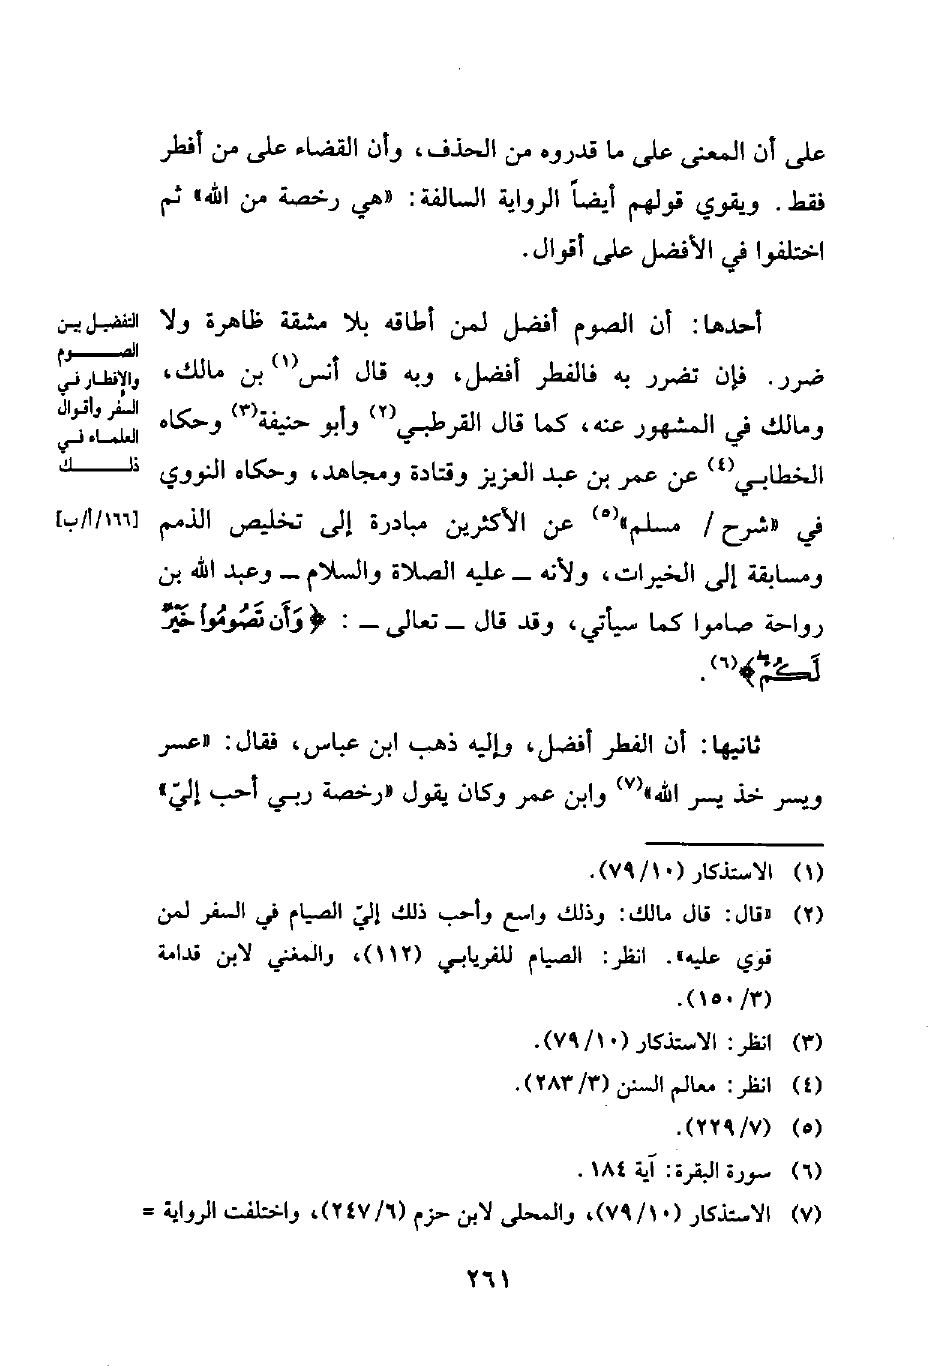 على أن المعنى على ما قدروه من الحذف، وأن القضاء على من أفطر
فقط. ويقوي قولهم أيضاً الرواية السالفة: «هي رخصة من الله» ثم
اختلفوا في الأفضل على أقوال.
أحدها: أن الصوم أفضل لمن أطاقه بلا مشقة ظاهرة ولا
ضرر. فإن تضرر به فالفطر أفضل، وبه قال أنس(١) بن مالك،
ومالك في المشهور عنه، كما قال القرطبي(٢) وأبو حنيفة(٣) وحكاه
الخطابي(٤) عن عمر بن عبد العزيز وقتادة ومجاهد، وحكاه النووي
في «شرح / مسلم»(٥) عن الأكثرين مبادرة إلى تخليص الذمم
ومسابقة إلى الخيرات، ولأنه ـ عليه الصلاة والسلام ـ وعبد الله بن
رواحة صاموا كما سيأتي، وقد قال ـ تعالى ـ : ﴿وَأَن تَصُومُوا۟ خَيْرٌ
لَّكُمْ﴾(٦).
التفضيل بين
الصوم
والإفطار في
السفر وأقوال
العلماء في
ذلك
[١٦٦/أ/ب]
ثانيها: أن الفطر أفضل، وإليه ذهب ابن عباس، فقال: «عسر
ويسر خذ يسر الله»(٧) وابن عمر وكان يقول «رخصة ربي أحب إليّ»
(١) الاستذكار (٧٩/١٠).
(٢) «قال: قال مالك: وذلك واسع وأحب ذلك إليّ الصيام في السفر لمن
قوي عليه». انظر: الصيام للفريابي (١١٢)، والمغني لابن قدامة
(١٥٠/٣).
(٣) انظر: الاستذكار (٧٩/١٠).
(٤) انظر: معالم السنن (٢٨٣/٣).
(٥) (٢٢٩/٧).
(٦) سورة البقرة: آية ١٨٤.
(٧) الاستذكار (٧٩/١٠)، والمحلى لابن حزم (٢٤٧/٦)، واختلفت الرواية =
٢٦١